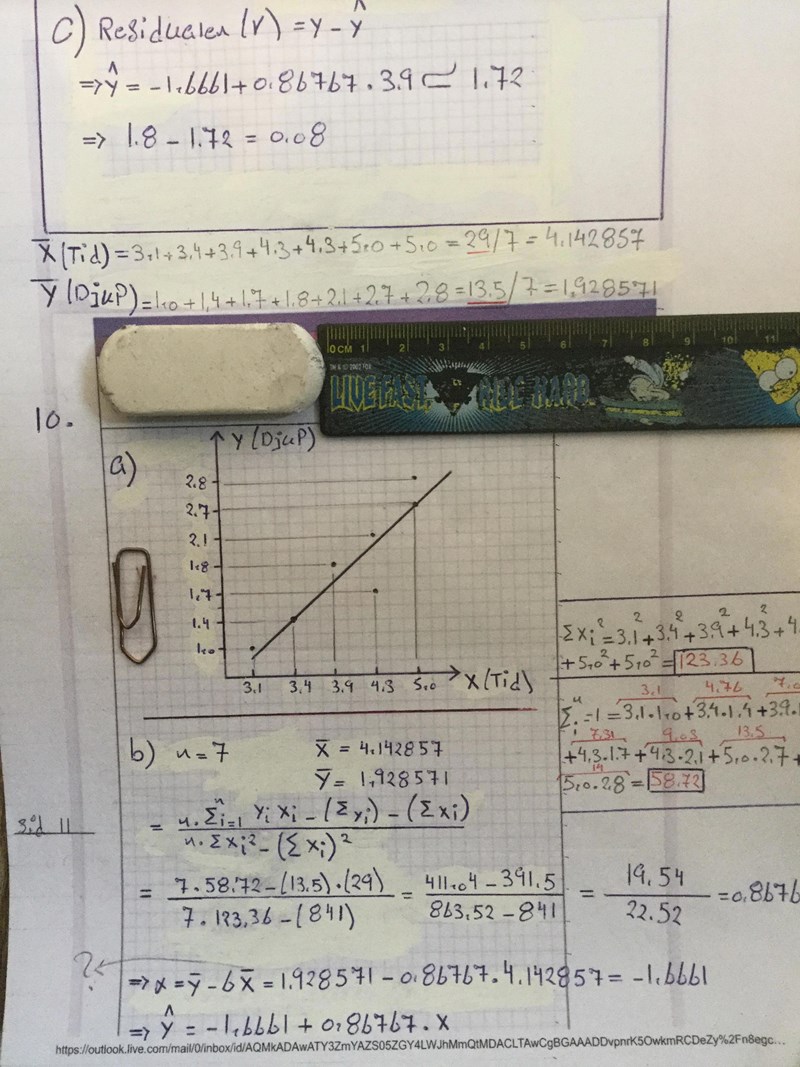 C) Residualen (r) = y - ŷ
⇒ ŷ = -1.6661+0.86767 . 3.9 ⊂ 1.72
⇒ 1.8 - 1.72 = 0.08
X̄ (Tid) = 3,1+3,4+3,9+4,3+4,3+5,0+5,0 = 29/7 = 4.142857
Ȳ (Djup) = 1,0+1,4+1,7+1,8+2,1+2,7+2,8 = 13.5/7 = 1,928571
0 CM 1 2 3 4 5 6 7 8 9 10 11
LIVE FAST,
10.
a)
Y (Djup)
2.8
2.7
2.1
1.8
1.7
1.4
1.0
3.1 3.4 3.9 4.3 5.0 X (Tid)
Σxi² = 3.1²+3.4²+3.9²+4.3²+4.
+5,0²+5,0² = 123.36
3,1 4.76 7.0
Σⁿᵢ=1 = 3.1.1,0+3.4.1.4+3.9.1
7.31 9.03 13.5
+4.3.1.7+4.3.2.1+5,0.2.7+
14
5,0.2.8 = 58.72
b) n = 7 X̄ = 4.142857
Ȳ = 1.928571
= n. Σⁿᵢ₌₁ yi xi - (Σyi) - (Σxi)
n. Σxi² - (Σxi)²
sid 11
= 7.58.72-(13.5).(29) = 411.04 - 391.5 = 19.54 = 0.8676
7.123,36-(841) 863.52-841 22.52
?
⇒ α = ȳ - b x̄ = 1.928571 - 0.86767.4.142857 = -1.6661
⇒ ŷ = -1.6661 + 0.86767 . x
https://outlook.live.com/mail/0/inbox/id/AQMkADAwATY3ZmYAZS05ZGY4LWJhMmQtMDACLTAwCgBGAAADDvpnrK5OwkmRCDeZy%2Fn8egc...